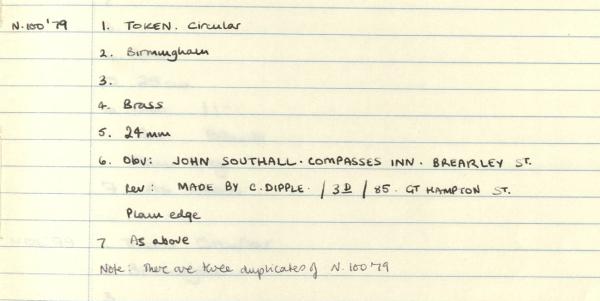 N.100'79 1. TOKEN. Circular
2. Birmingham
3.
4. Brass
5. 24mm
6. Obv: JOHN SOUTHALL. COMPASSES INN. BREARLEY ST.
Rev: MADE BY C. DIPPLE. / 3D / 85. GT HAMPTON ST.
Plain edge
7 As above
Note: There are three duplicates of N.100'79